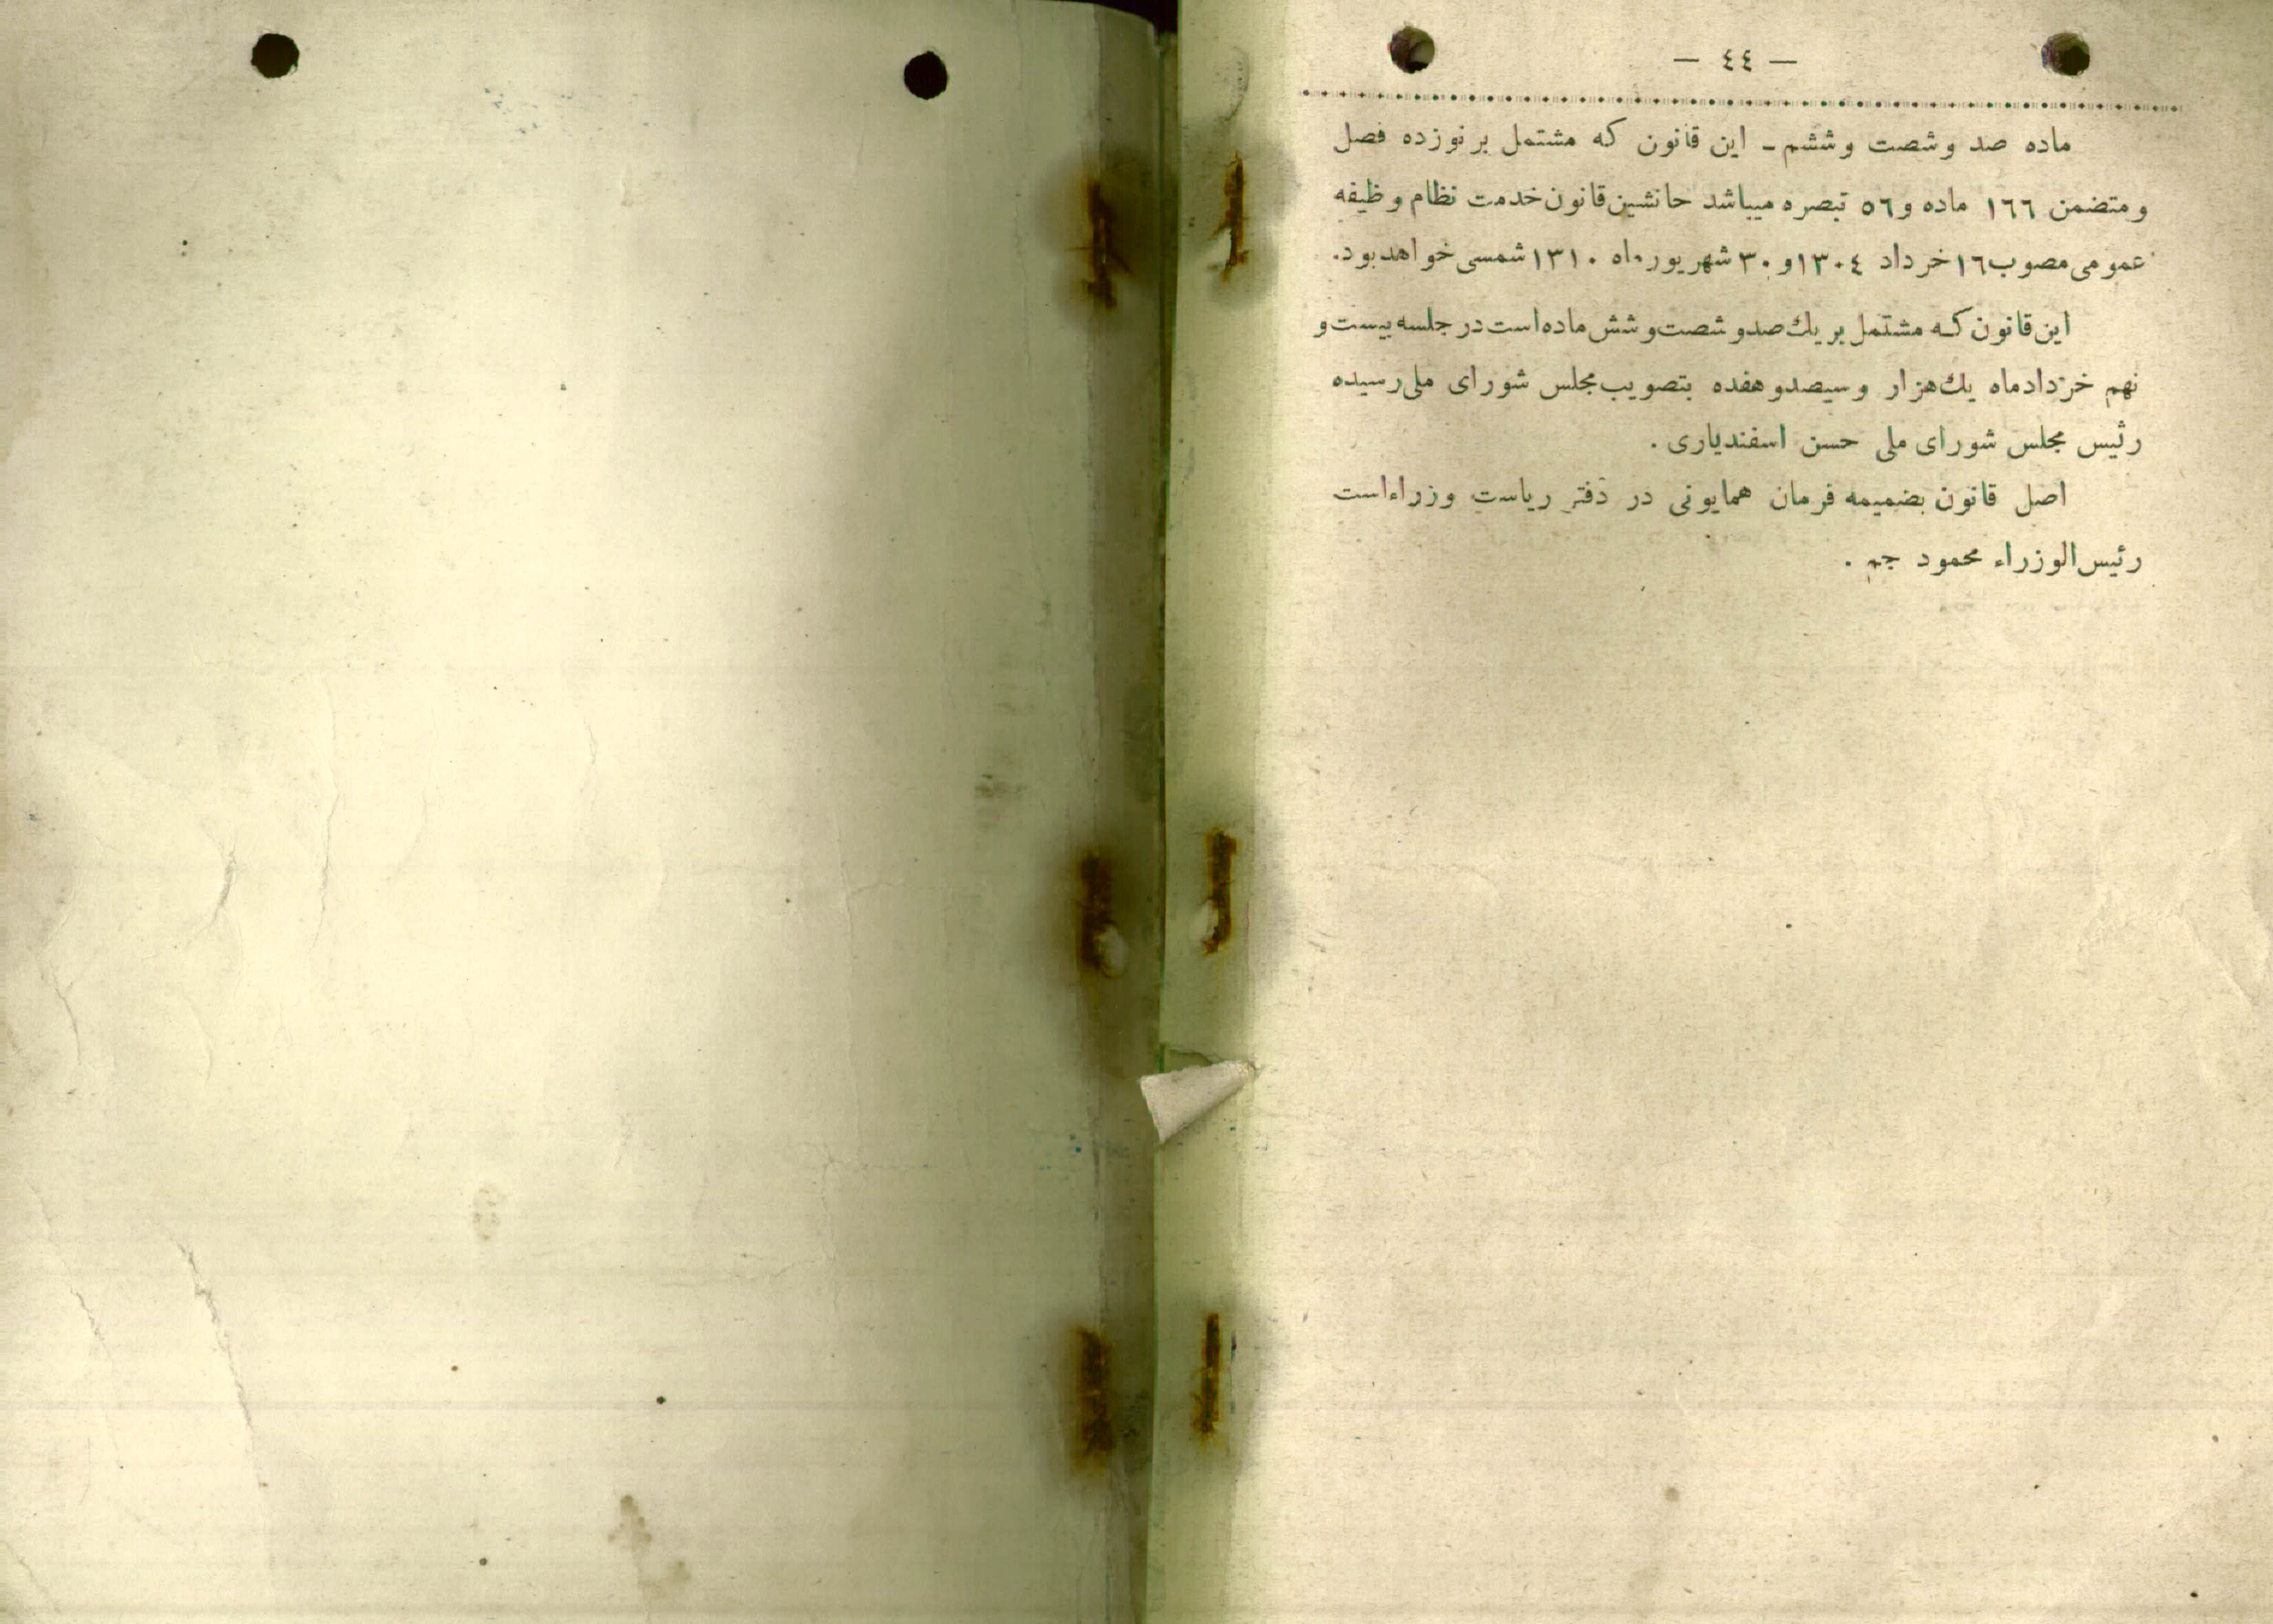 — ٤٤ —
ماده صد و شصت و ششم - این قانون که مشتمل بر نوزده فصل
و متضمن ١٦٦ ماده و ٥٦ تبصره میباشد جانشین قانون خدمت نظام وظیفه
عمومی مصوب ١٦ خرداد ١٣٠٤ و ٣٠ شهریور ماه ١٣١٠ شمسی خواهد بود.
این قانون که مشتمل بر یك صد و شصت و شش ماده است در جلسه بیست و
نهم خرداد ماه یك هزار و سیصد و هفده بتصویب مجلس شورای ملی رسیده
رئیس مجلس شورای ملی حسن اسفندیاری .
اصل قانون بضمیمه فرمان همایونی در دفتر ریاست وزراء است
رئیس الوزراء محمود جم .